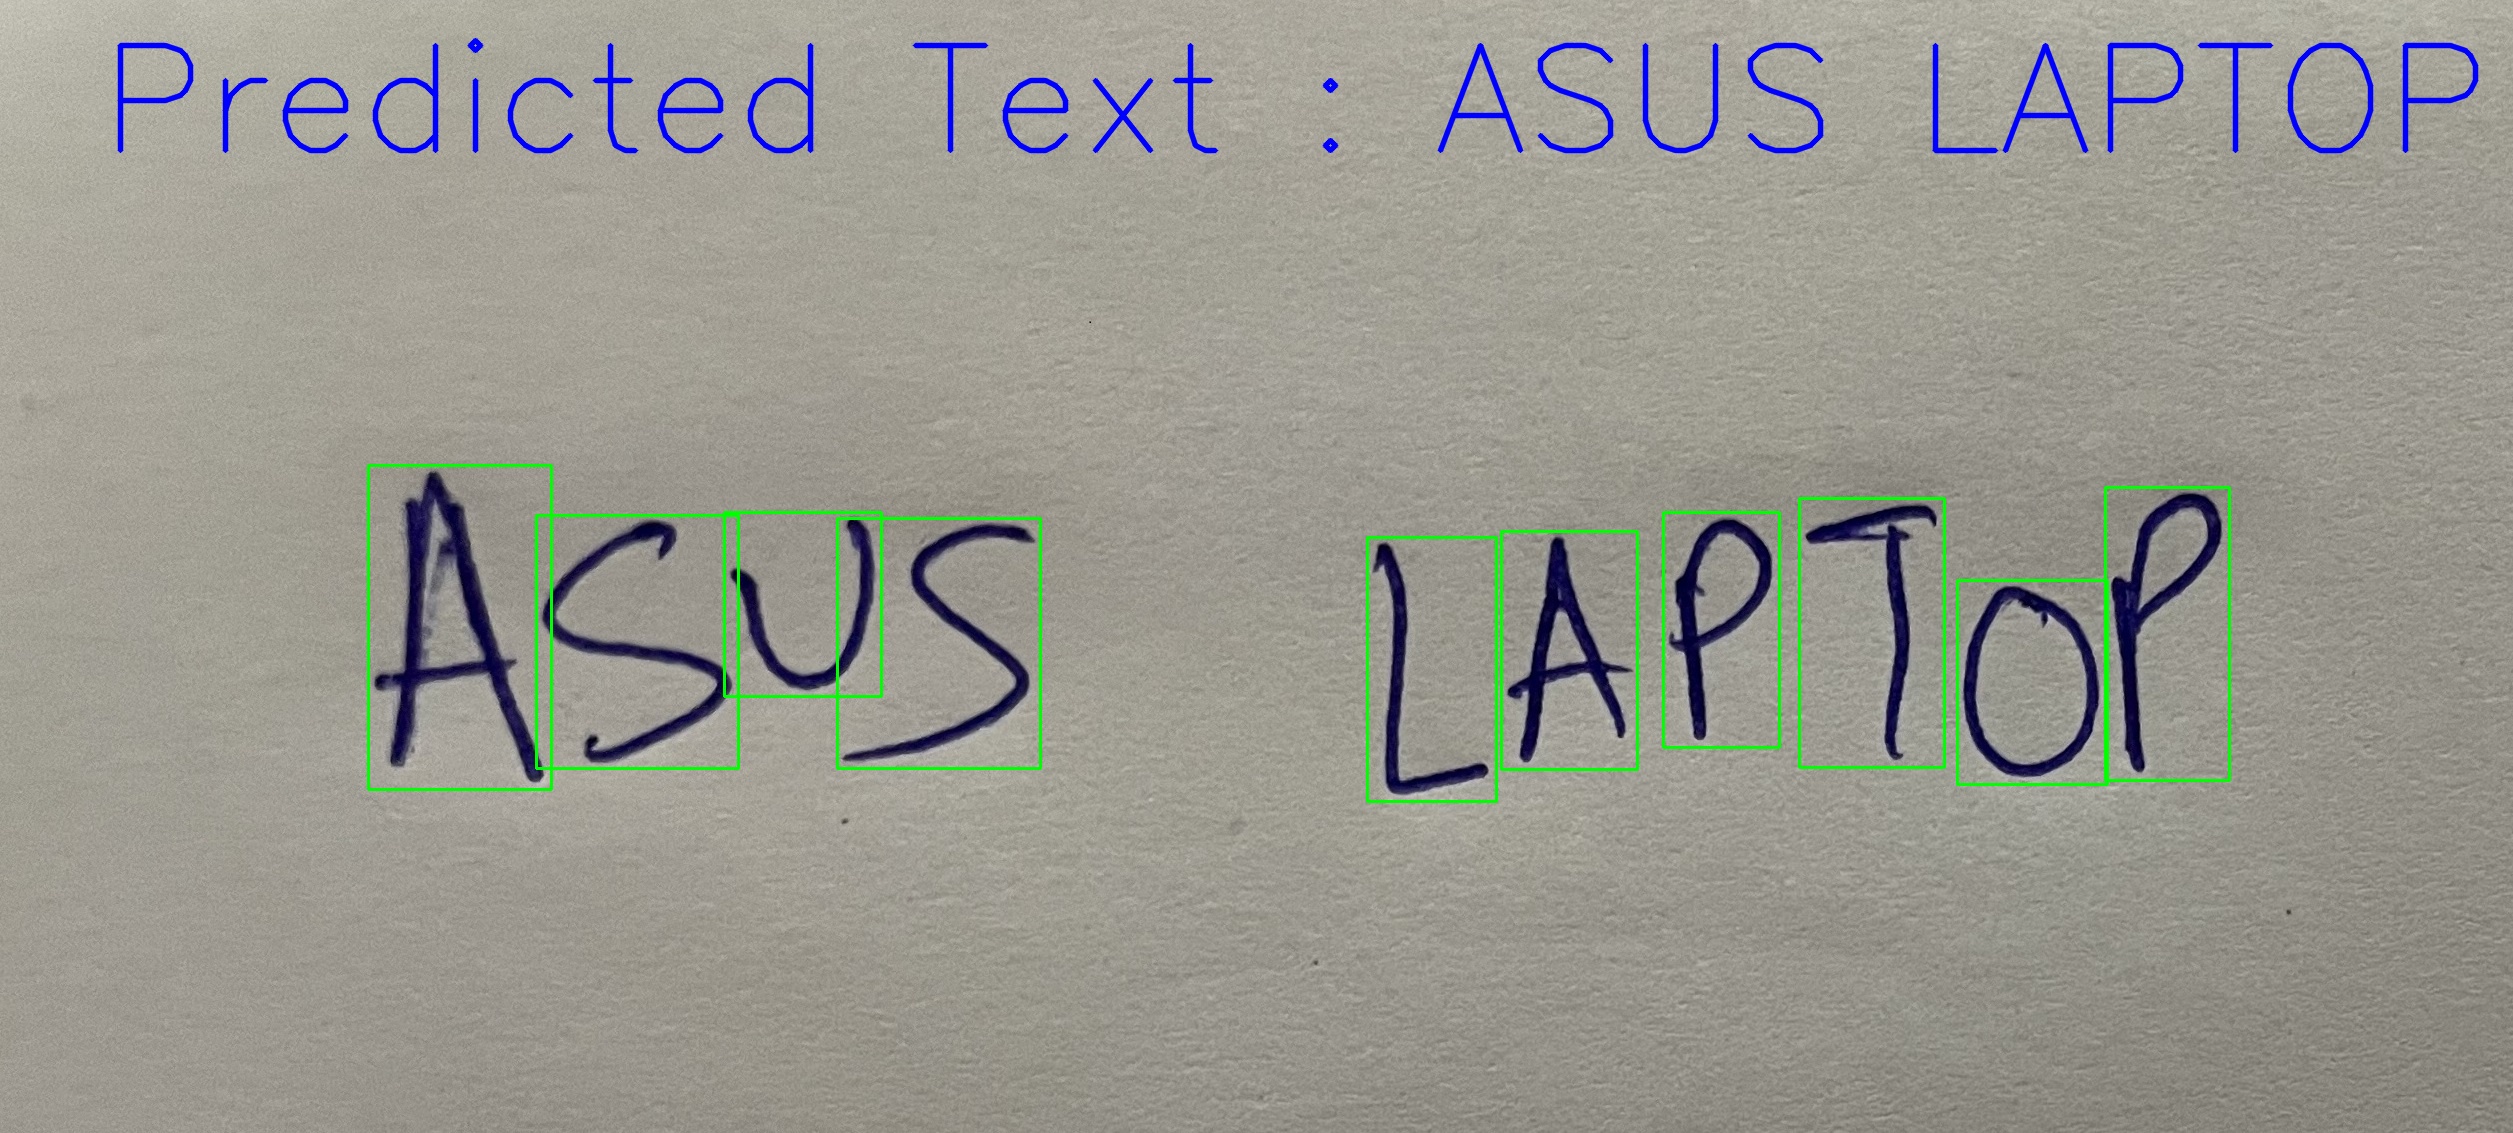 Predicted Text : ASUS LAPTOP
ASUS LAPTOP